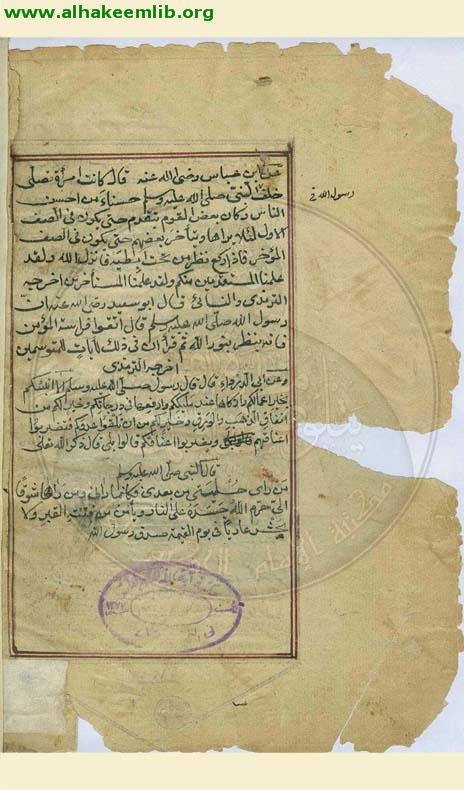 www.alhakeemlib.org
عن ابن عباس رضى الله عنه قال كانت امرأة تصلى
خلف النبى صلى الله عليه وسلم حسناء من احسن
رسول الله فى
الناس وكان بعض القوم يتقدم حتى يكون فى الصف
الاول لئلا يراها ويتأخر بعضهم حتى يكون فى الصف
المؤخر فاذا ركع نظر من تحت ابطيه فانزل الله ولقد
علمنا المستقدمين منكم ولقد علمنا المستأخرين اخرجه
الترمذى والنسائى قال ابو سعيد رضى الله عنه ان
رسول الله صلى الله عليه وسلم قال اتقوا فراسة المؤمن
فانه ينظر بنور الله ثم قرأ ان فى ذلك لايات للمتوسمين
اخرجه الترمذى
وعن ابى الدرداء قال قال رسول صلى الله عليه وسلم الا انبئكم
خير اعمالكم وازكاها عند مليككم وارفعها فى درجاتكم وخير لكم من
انفاق الذهب والورق وخير لكم من ان تلقوا عدوكم فتضربوا
اعناقهم ويضربوا اعناقكم قالوا بلى قال ذكر الله تعالى
قال النبى صلى الله عليه وسلم
من راى حليتى من بعدى فكانما رانى ومن رانى شوقا
الى حرم الله جسده على النار ويأمن من فتنة القبر ولا
يحشر عاريا فى يوم القيمة صدق رسول الله